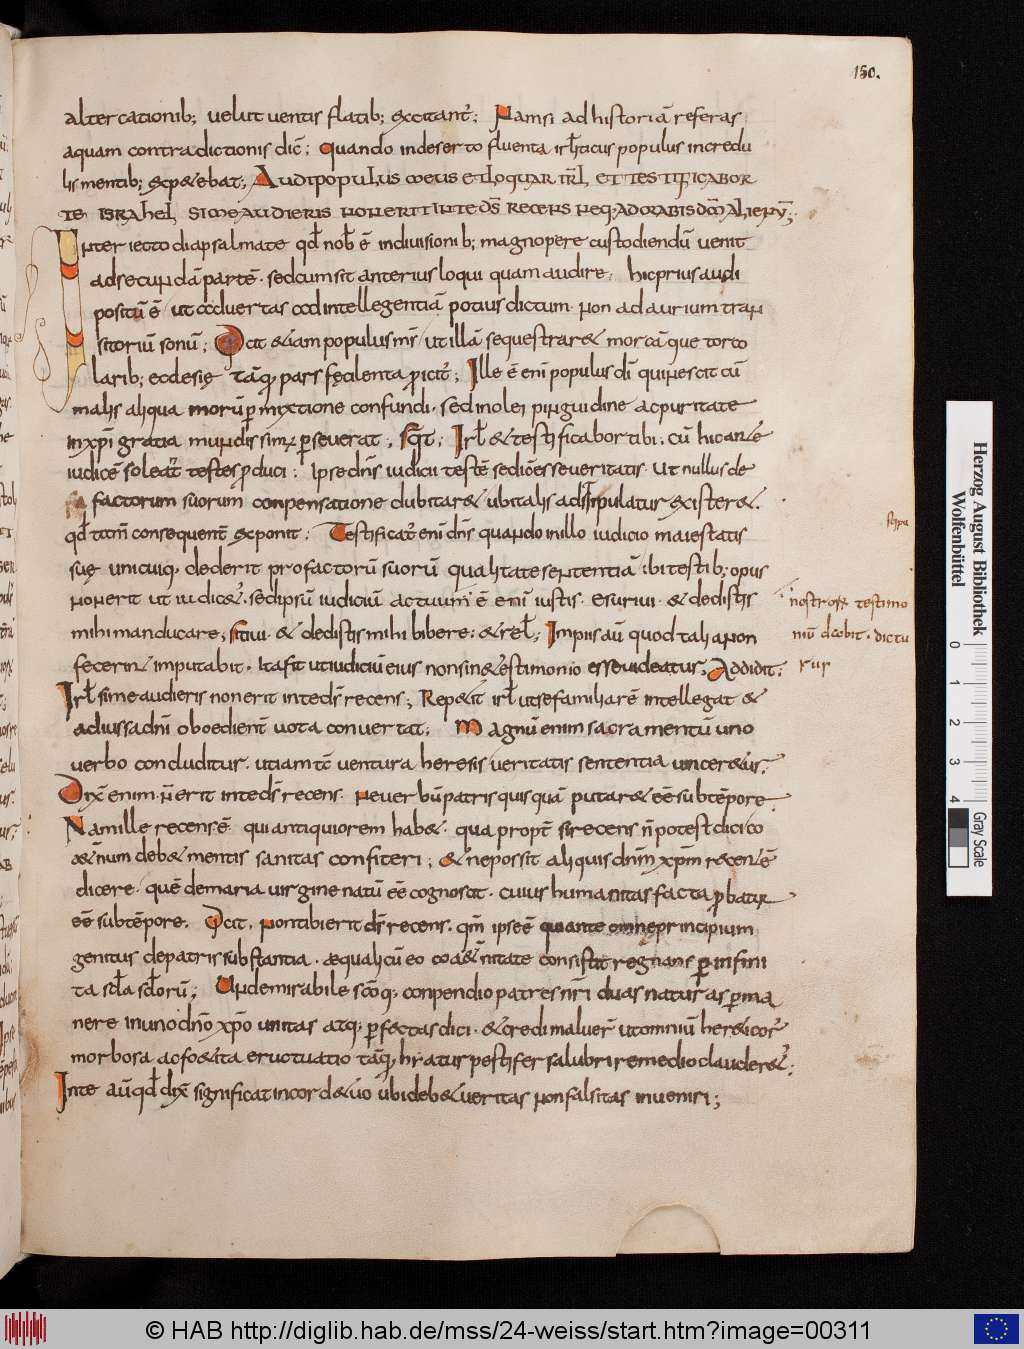 150.
altercationib; uelut uentis flatib; excitant᷑; Namsi ad historiā referas
aquam contradictionis dic̄; quando indeserto fluenta irl̄iticus populus incredu
lis mentib; expetebat; AUDI POPULUS MEUS ET LOQUAR ISRL̄ ET TESTIFICABOR
TE ISRAHEL SI ME AUDIERIS NON ERIT IN TE DS̄ RECENS NEQ· ADORABIS DM̄ ALIENŪ;
Inter iecto diapsalmate qd̄ nob̄ ē indiuisionib; magnopere custodiendū uenit
ad secundā partē· sed cum sit anterius loqui quam audire, hic prius audi
positū ē, ut aduertas ad intellegentiā potius dictum· non ad aurium tran
sitoriū sonū; Dicit & iam populus ms̄, ut illā sequestraret mortāque torto
larib; ecclesię tāq; pars fęculenta proicit᷑; Ille ē eni populus di qui nescit cū
malis aliqua morū p mixtione confundi· sed in olei pinguidine ac puritate
in xpi gratia mundissim; pseuerat; sq̄t; Irl̄ & testificabor tibi;
iudicē soleat᷑ testes pduci; Ipse dn̄s iudicii testē se dic̄ esse ueritatis· Ut nullus de
factorum suorum conpensatione dubitaret ubi talis adstipulatur existeret·
qd̄ tam̄ consequent̄ exponit; Testificat᷑ eni dn̄s quando in illo iudicio maiestatis
suę unicuiq· dederit pro factorū suorū qualitate sententiā ibi testib; opus
non erit ut iudicet᷑· sed ipsū iudiciū actuum ē eni iustis· esuriui· & dedistis
mihi manducare; sitiui· & dedistis mihi bibere; & rel̄; Impiis aū quod talia non
fecerint imputabit· Ita fit ut iudiciū eius non sine testimonio esse uideatur; Addidit;
Irl̄ si me audieris non erit in te ds̄ recens; Repetit irl̄ ut se familiarē intellegat &
ad iussa dn̄i oboedient̄ uota conuertat; Magnū enim sacramentū uno
uerbo concluditur· ut iam tc̄ uentura heresis ueritatis sententia uinceret᷑;
Dix̄ enim· n̄ erit in te ds̄ recens· Neuerbū patris quisquā putaret eē sub tēpore·
Nam ille recens ē qui antiquiorem habet· qua propt̄ si recens n̄ potest dici co
aet̄num debet mentis sanitas confiteri; & ne possit aliquis dn̄m xp̄m recentē
dicere· quē de maria uirgine natū eē cognoscit· cuius humanitas facta pbatur
eē sub tēpore· Dicit· Non tibi erit ds̄ recens· qm̄ ipse ē qui ante omne principium
genitus de patris substantia· aequali cū eo coaet̄nitate consistit regnans p infini
ta scl̄a scl̄orū; Unde mirabile scoq; conpendio patres nr̄i duas naturas p ma
nere in uno dn̄o xp̄o unitas atq; pfectas dici· & credi maluer̄ ut omniū hereticor᷑
morbosa ac foetita eructuatio tāq; hiatur pestifer salubri remedio clauderet᷑;
In te aū qd̄ dix̄ significat in corde tuo ubi debet ueritas non falsitas inueniri;
stipu
nostrorum testimo
niū dicit
© HAB http://diglib.hab.de/mss/24-weiss/start.htm?image=00311
Herzog August Bibliothek
Wolfenbüttel
0 1 2 3 4
Gray Scale